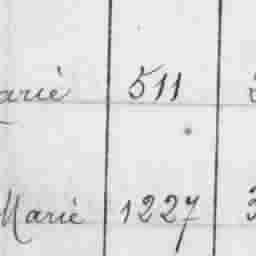 arié 511
Marié 1227 3